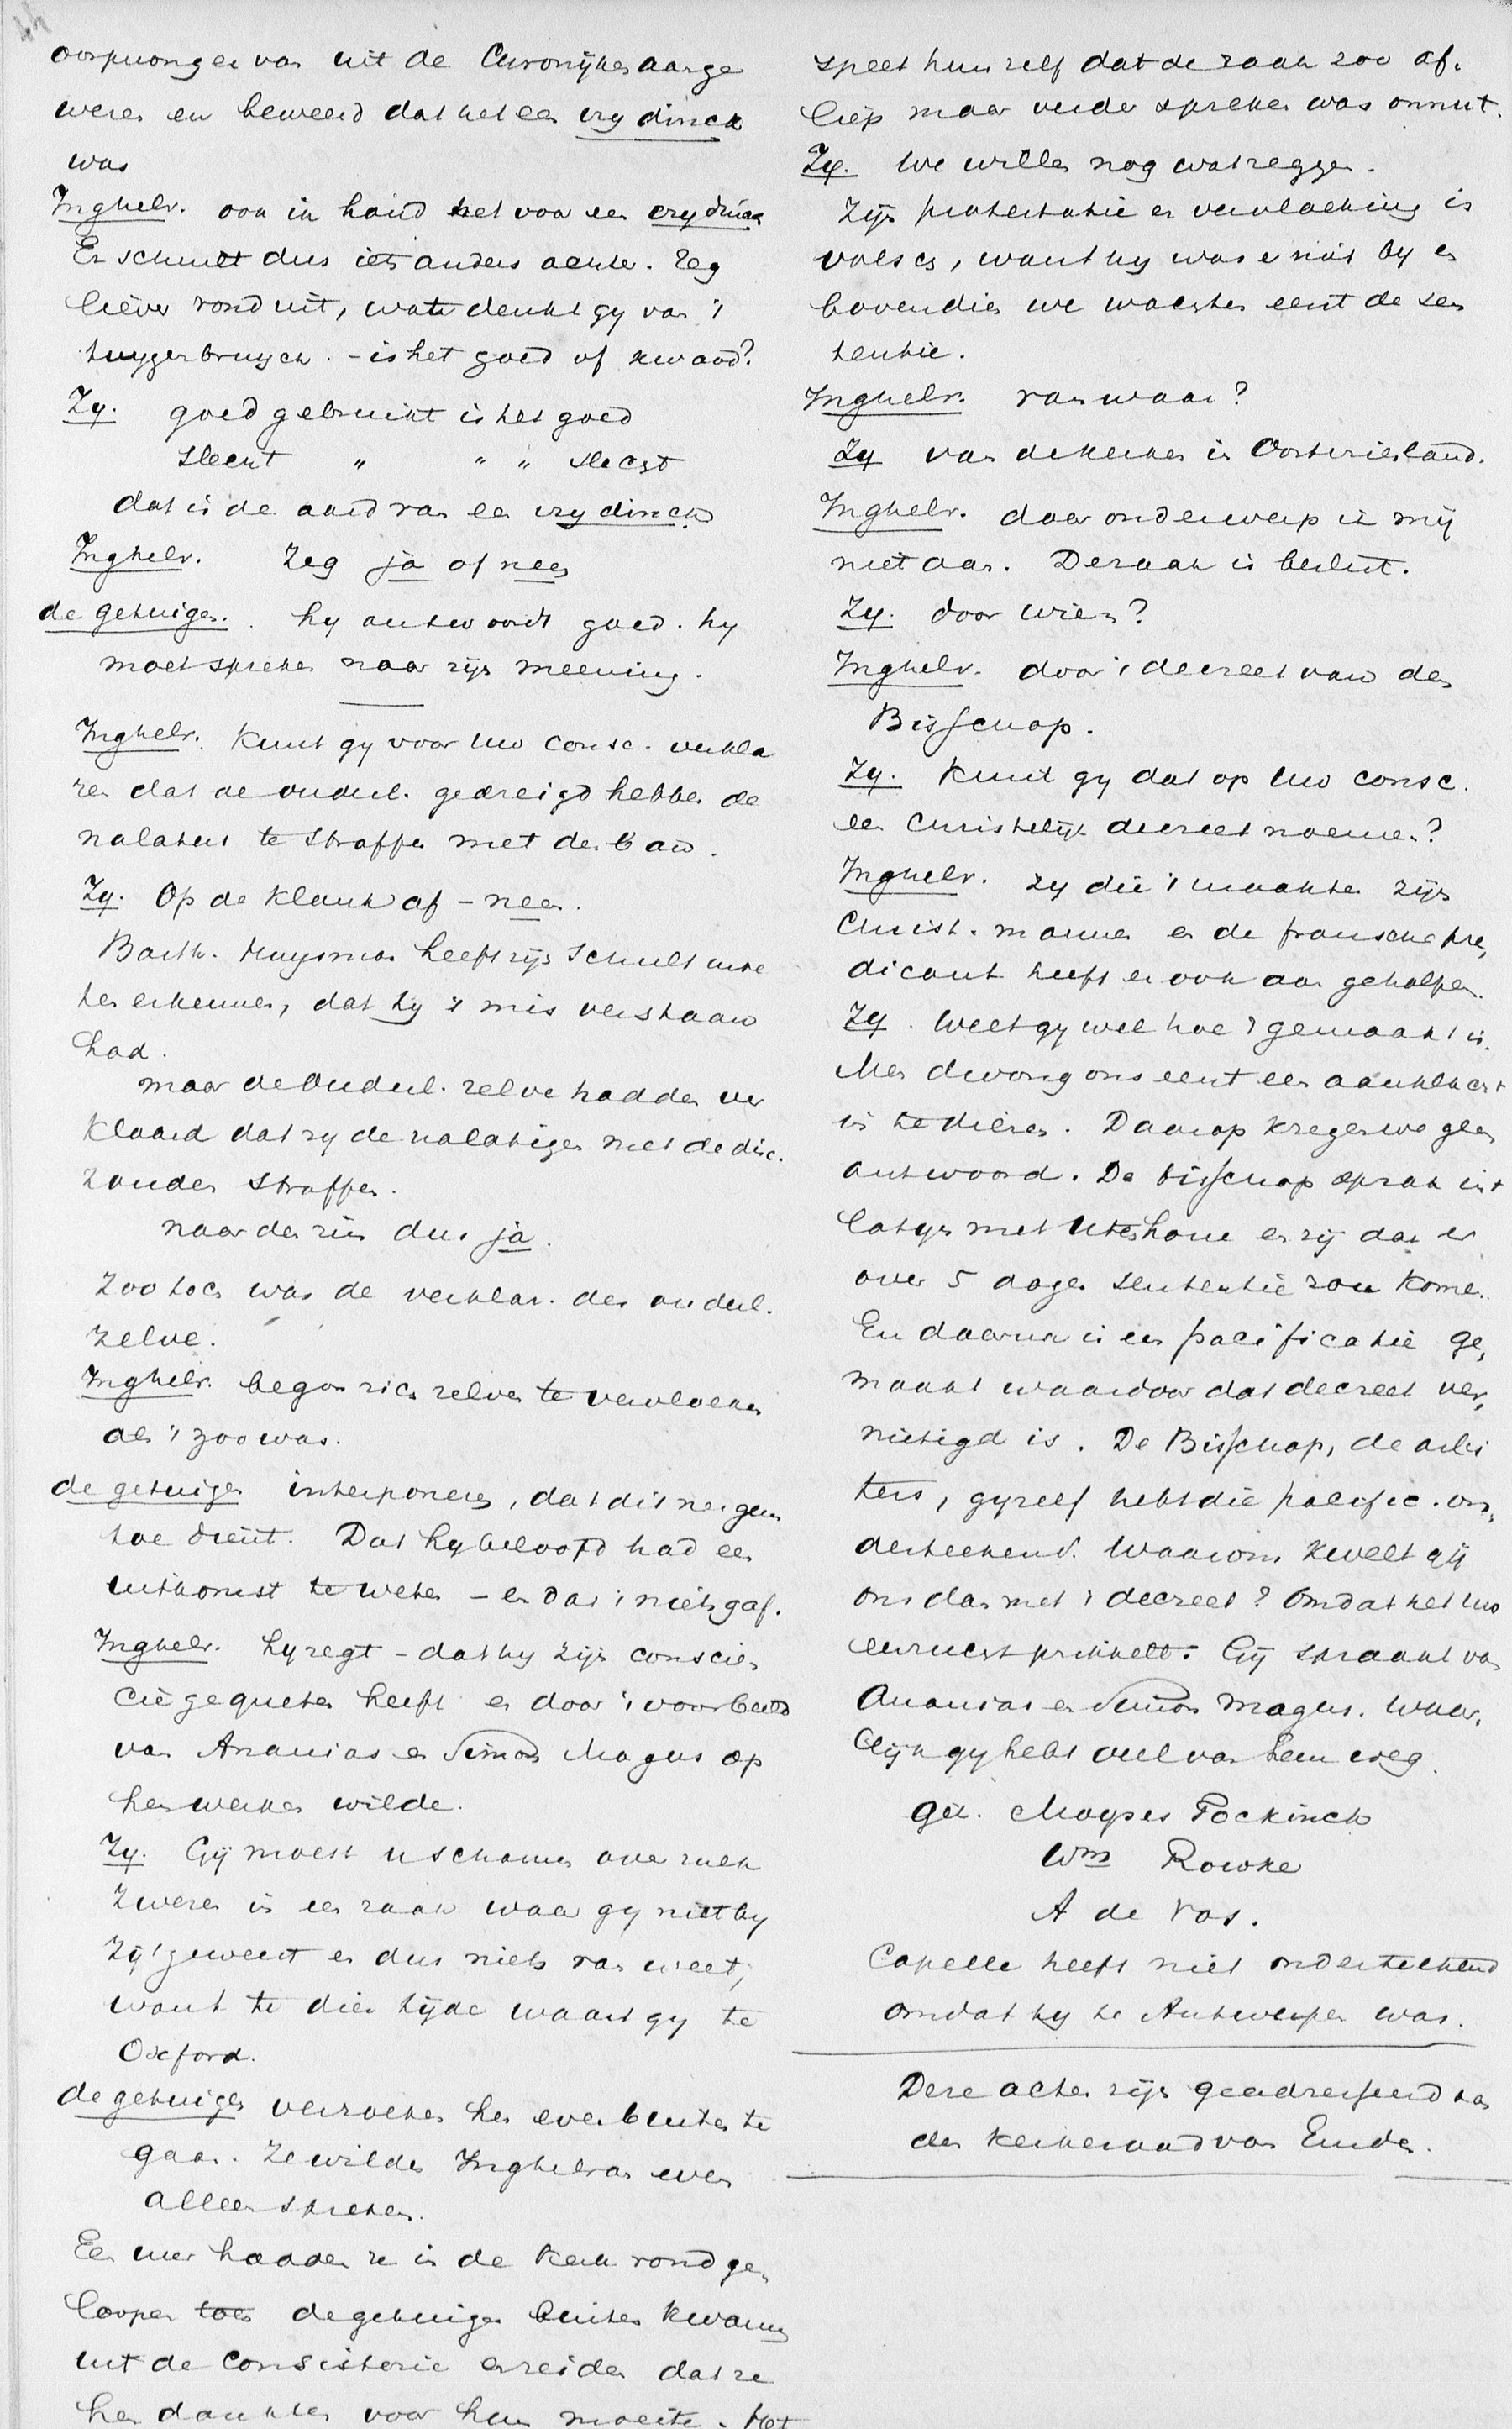 oorsprongen van uit de Chronijken aange
wezen en beweerd dat het een vry dinck
was
Inghelr. ook ik houd het voor een vry dinck
Er schuilt dus iets anders achter. Zeg
liever ronduit, wat denkt gy van 't
tuygerbruyck. - is het goed of kwaad?
Zy. goed gebruikt is het goed
slecht " " " slecht
dat is de aard van een vry dinck
Inghelr. Zeg ja of neen
de getuigen. hy antwoordt goed. hy
moet spreken naar zijn meening.
Inghelr. Kunt gy voor uw consc. verkla
ren dat de ouderl. gedreigd hebben de
nalaters te straffen met den ban.
Zy. Op de klank af - neen.
Barth. Huysman heeft zijn schuld moe
ten erkennen, dat hy 't mis verstaan
had.
maar de Ouderl. zelve hadden ver
klaard dat zy de nalatigen met de disc.
zouden straffen.
naar den zin dus ja.
Zoo toch was de verklar. der ouderl.
zelve.
Inghelr. begon zich zelven te vervloeken
als 't zoo was.
de getuigen interponeren, dat dit nergens
toe dient. Dat hy beloofd had een
uitkomst te weten - en dat 't niets gaf.
Inghelr. hy zegt - dat hy zijn conscien
cie gequeten heeft en door 't voorbeeld
van Ananias en Simon Magus op
hen werken wilde.
Zy. Gij moest u schamen over zulk
zweren in een zaak waar gy niet by
zijt geweest en dus niets van weet,
want te dien tijde waart gy te
Oxford.
de getuigen verzoeken hen even buiten te
gaan. Ze wilden Inghelram even
alleen spreken.
Een uur hadden ze in de kerk rondge,
loopen toen de getuigen buiten kwamen
uit de Consistorie en zeiden dat ze
hen dankten voor hun moeite. Het
speet hun zelf dat de zaak zoo af.
liep maar verder spreken was onnut.
Zy. We willen nog wat zeggen.
Zijn protestatie en vervloeking is
valsch, want hy was er niet by en
bovendien we wachten eerst de sen
tentie.
Inghelr. van waar?
Zy van de kerken in Oostvriesland.
Inghelr. daar onderwerp ik mij
niet aan. De zaak is beslist.
Zy. door wien?
Inghelr. door 't decreet van den
Bisschop.
Zy. Kunt gy dat op uw consc.
een Christelijk decreet noemen?
Inghelr. zy die 't maakten zijn
Christ. mannen en de fransche pre,
dicant heeft er ook aan geholpen.
Zy. Weet gy wel hoe 't gemaakt is.
Men dwong ons eerst een aanklacht
in te dienen. Daarop kregen we geen
antwoord. De bisschop sprak in 't
latijn met Utenhove en zij dat er
over 5 dagen sententie zou komen.
En daarna is een pacificatie ge,
maakt waardoor dat decreet ver,
nietigd is. De Bisschop, de arbi
ters, gy zelf hebt die pacific. on,
derteekend. Waarom kwelt gij
ons dan met 't decreet? Omdat het uw
eerzucht prikkelt. Gij spraakt van
Ananias en Simon Magus. Waar,
lijk gy hebt veel van hem weg.
get. Moyses Fockinck
Wm Rowke
A de Vos.
Capelle heeft niet onderteekend
omdat hy te Antwerpen was.
Deze acten zijn geadresseerd aan
den kerkeraad van Emden.